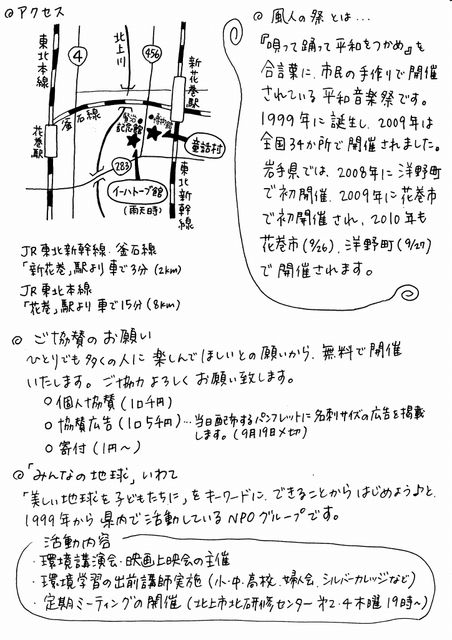 ◎アクセス
東北本線
4
北上川
456
新花巻駅
釜石線
花巻駅
賢治記念館
博物館
童話村
283
イーハトーブ館
(雨天時)
東北新幹線
JR東北新幹線・釜石線
「新花巻」駅より車で3分(2km)
JR東北本線
「花巻」駅より車で15分(8km)
◎風人の祭とは…
『唄って踊って平和をつかめ』を
合言葉に、市民の手作りで開催
されている平和音楽祭です。
1999年に誕生し、2009年は
全国34か所で開催されました。
岩手県では、2008年に洋野町
で初開催、2009年に花巻市
で初開催され、2010年も
花巻市(9/26)、洋野町(9/27)
で開催されます。
◎ご協賛のお願い
ひとりでも多くの人に楽しんでほしいとの願いから、無料で開催
いたします。ご協力よろしくお願い致します。
○個人協賛(1口千円)
○協賛広告(1口5千円)…当日配布するパンフレットに名刺サイズの広告を掲載
します。(9月19日〆切)
○寄付(1円〜)
◎「みんなの地球」いわて
「美しい地球を子どもたちに」をキーワードに、できることからはじめよう♪と、
1999年から県内で活動しているNPOグループです。
活動内容
・環境講演会・映画上映会の主催
・環境学習の出前講師実施(小・中・高校、婦人会、シルバーカレッジなど)
・定期ミーティングの開催(北上市北研修センター 第2・4木曜19時〜)